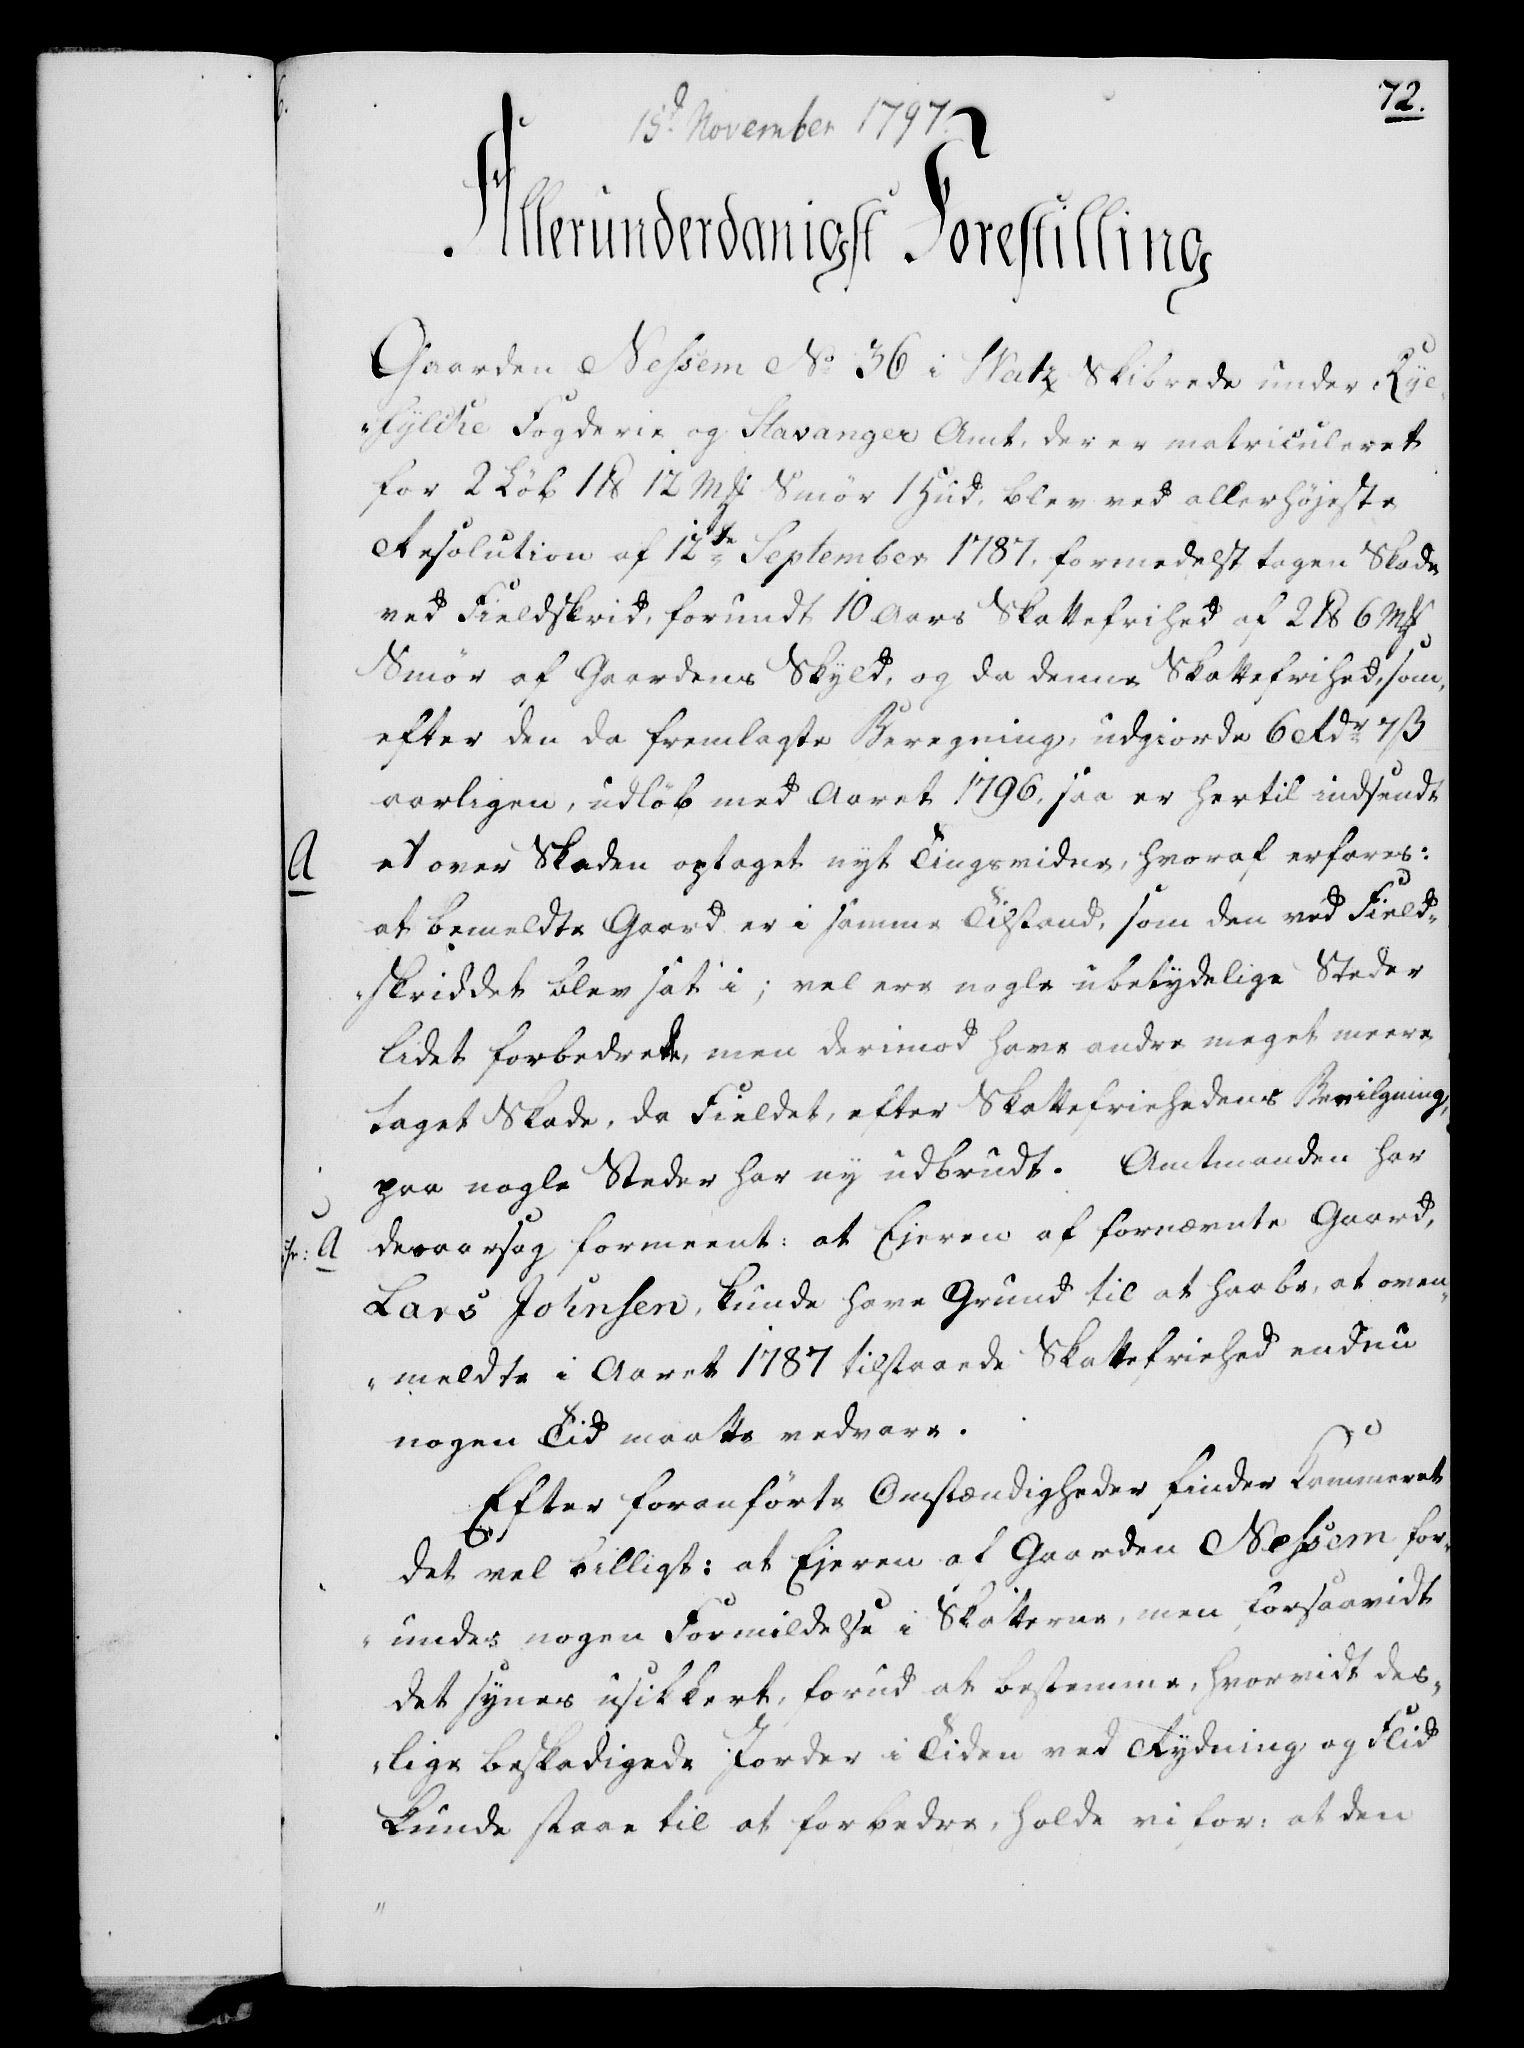 72.
15d November 1797.
Allerunderdanigst Forestilling
Gaarden Nessem No 36 i Watz Skibrede under Rye-
"fylche Fogderie og Stavanger Amt, der er matriculeret
for 2 Løb 1 ℔ 12 Mk Smør 1 Hud, blev ved allerhøjeste
Resolution af 12te September 1787, formedelst tagen Skade
ved Fieldskrid, forundt 10 Aars Skattefrihed af 2 ℔ 6 Mk
Smør af Gaardens Skyld, og da denne Skattefrihed, som,
efter den da fremlagte Beregning, udgiorde 6 Rdr 7 ß
aarligen, udløb med Aaret 1796, saa er hertil indsendt
A
et over Skaden optaget nyt Tingsvidne, hvoraf erfares:
at bemeldte Gaard er i samme Tilstand, som den ved Field-
"skriddet blev sat i; vel ere nogle ubetydelige Steder
lidet forbedrede, men derimod have andre meget meere
taget Skade, da Fieldet, efter Skattefriehedens Bevilgning,
paa nogle Steder har ny udbrudt. Amtmanden har
cfr: A
desaarsag formeent: at Ejeren af fornævnte Gaard,
Lars Johnsen, kunde have Grund til at haabe, at oven-
"meldte i Aaret 1787 tilstaaede Skattefriehed endnu
nogen Tid maatte vedvare.
Efter foranførte Omstændigheder finder Kammeret
det vel billigt: at Ejeren af Gaarden Nessem for-
"undes nogen Formildelse i Skatterne, men forsaavidt
det synes usikkert, forud at bestemme, hvorvidt des-
"lige beskadigede Jorder i Tiden ved Rydning og Flid
kunde staae til at forbedre, holde vi for: at den
"